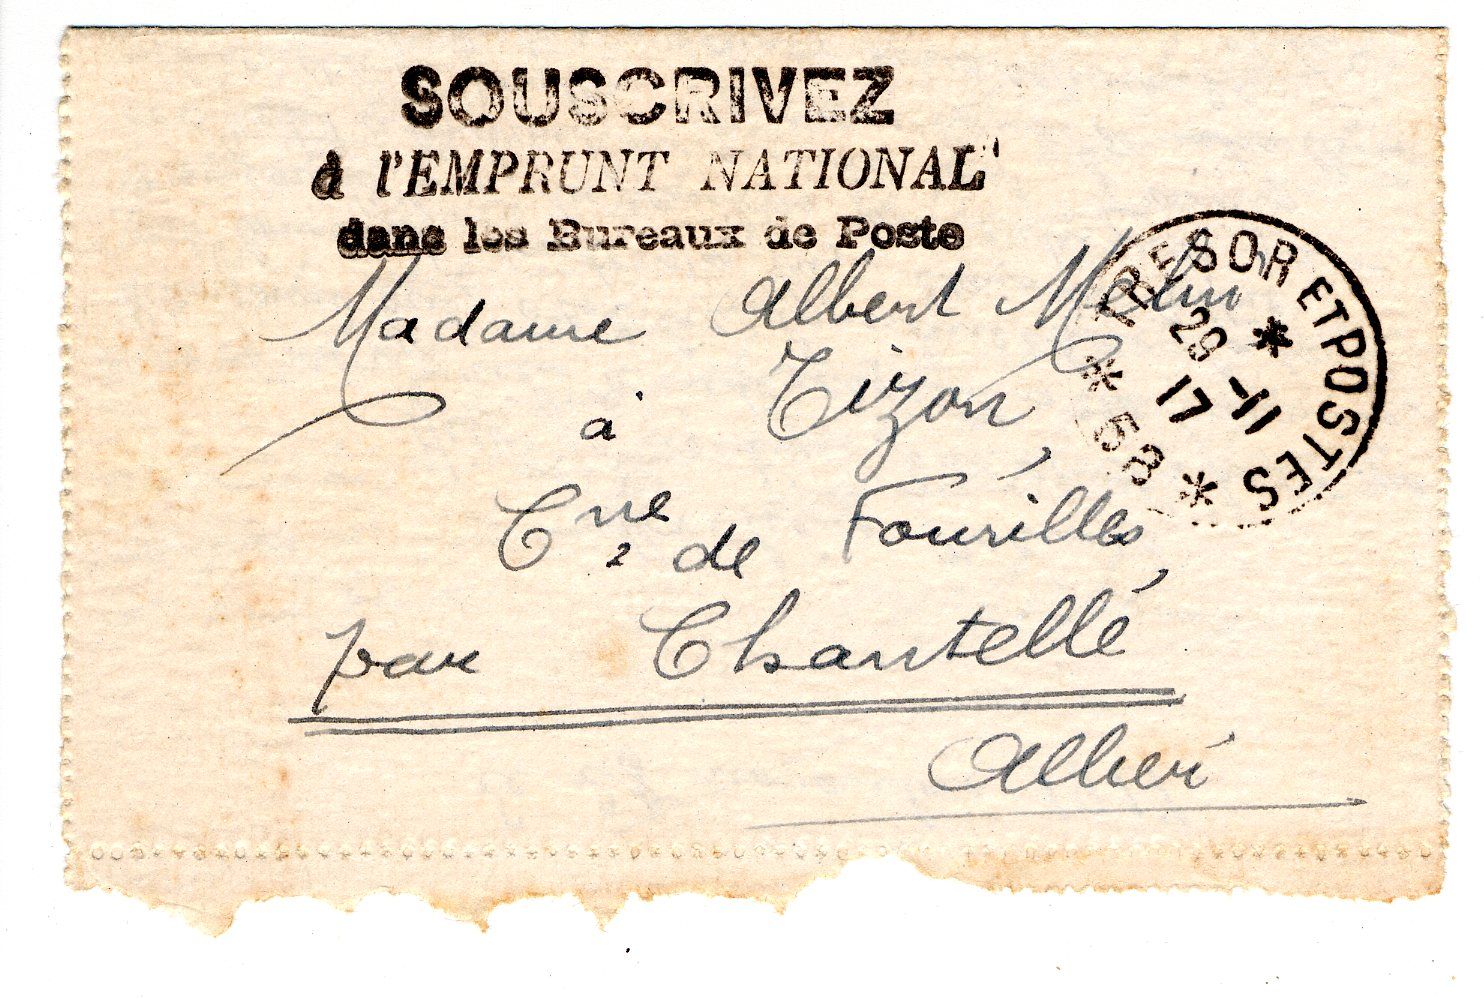 SOUSCRIVEZ
à l'EMPRUNT NATIONAL
dans les Bureaux de Poste
TRESOR ET POSTES
29 -11
17
* 58 *
*
Madame Albert
à Tizon,
Cne de Fourilles,
par Chantelle
Allier